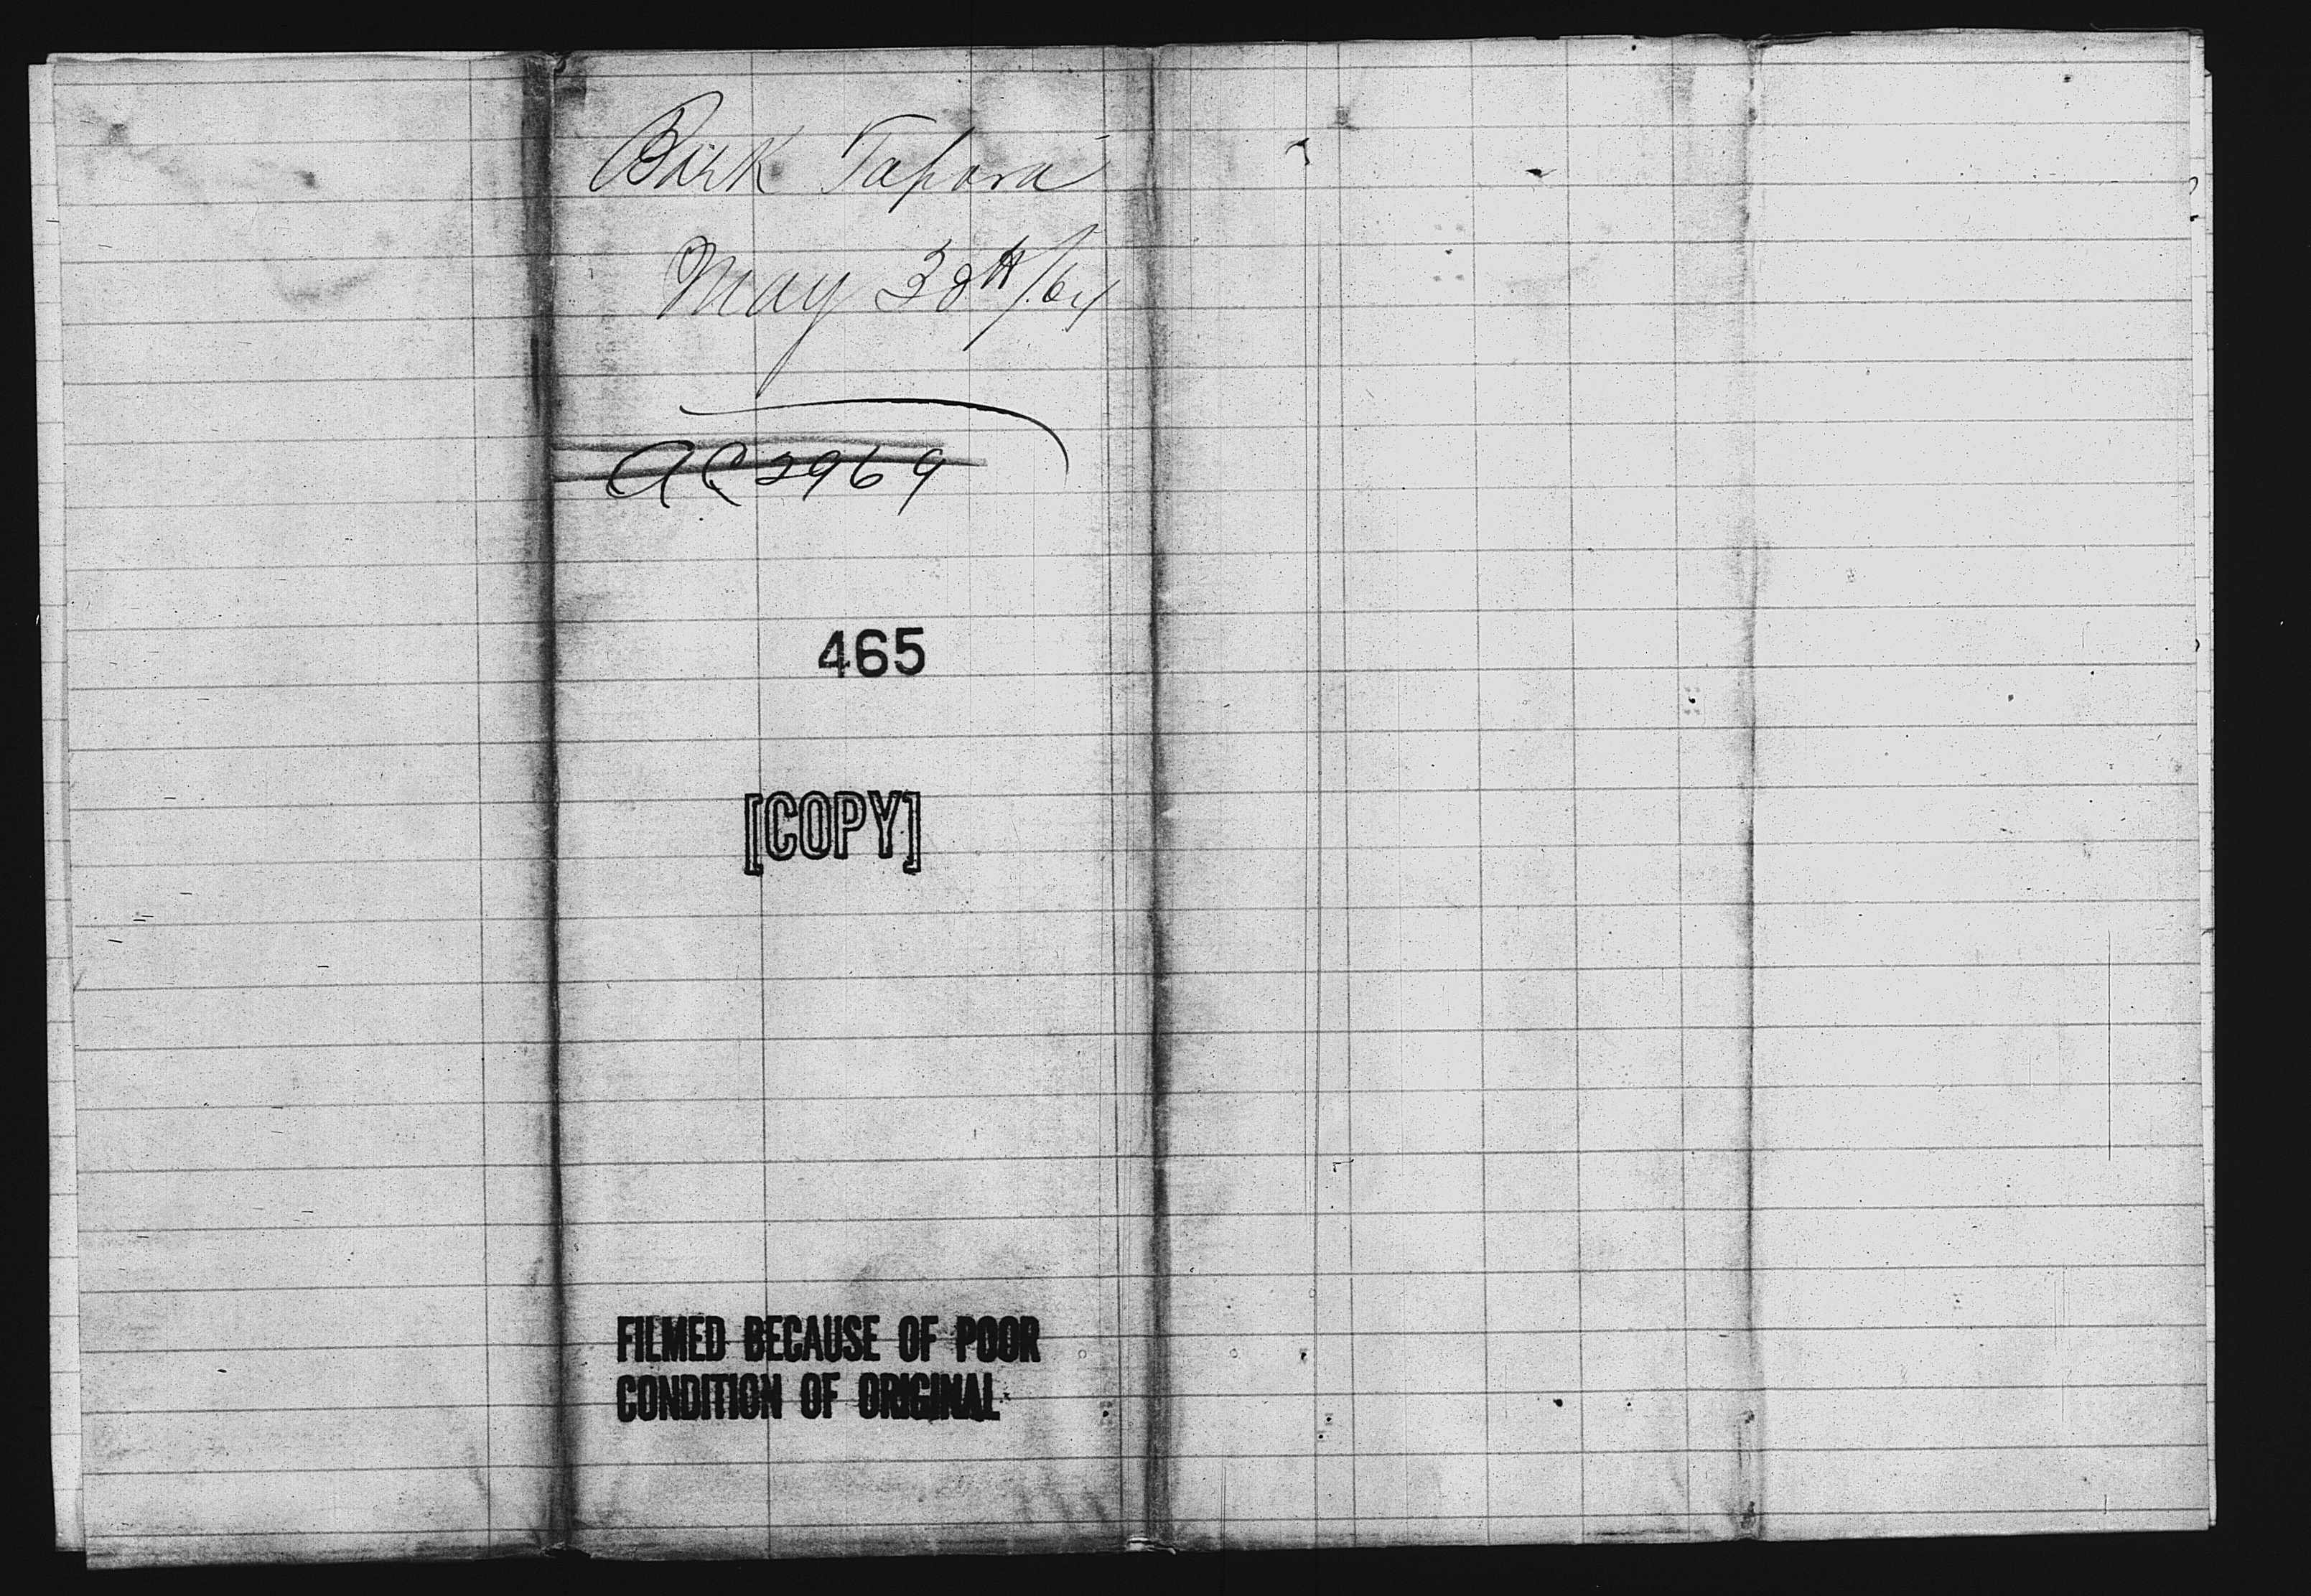 Bark Tapora
May 30th/64
AC 2969
465
[COPY]
FILMED BECAUSE OF POOR
CONDITION OF ORIGINAL